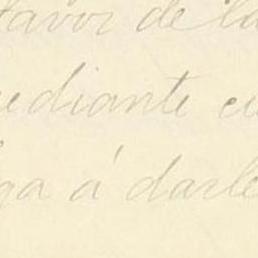 favor de la
mediante e
ga á darle